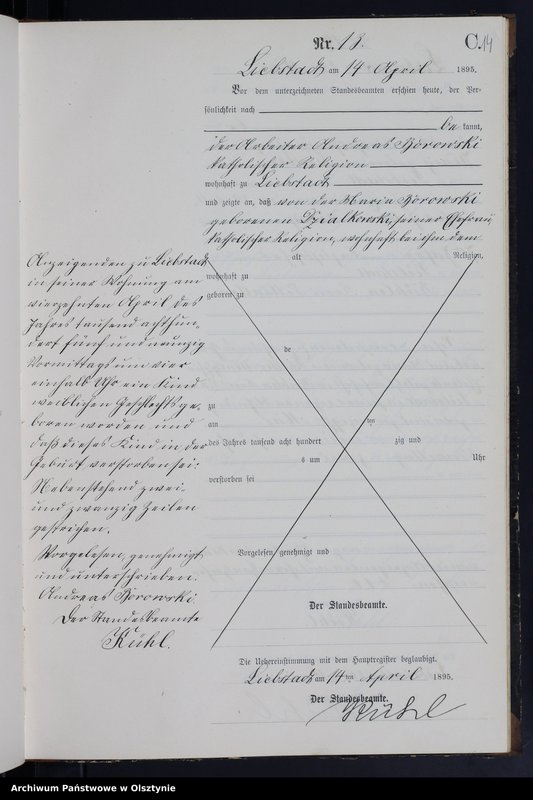 Nr. 13.
C.
14
Liebstadt am 14 April 1895.
Vor dem unterzeichneten Standesbeamten erschien heute, der Per-
sönlichkeit nach
be kannt,
der Arbeiter Andreas Borowski
katholischer Religion
wohnhaft zu Liebstadt
und zeigte an, daß von der Maria Borowski
geborenen Dzialkowski, seiner Ehefrau
katholischer Religion, wohnhaft bei ihm dem
alt Religion,
wohnhaft zu
geboren zu
de
zu
am ten
des Jahres tausend acht hundert zig und
s um Uhr
verstorben sei
Vorgelesen, genehmigt und
Der Standesbeamte.
Anzeigenden zu Liebstadt
in seiner Wohnung am
vierzehnten April des
Jahres tausend achthun-
dert fünf und neunzig
Vormittags um vier
einhalb Uhr ein Kind
weiblichen Geschlechts ge-
boren worden und
daß dieses Kind in der
Geburt verstorben sei.
Nebenstehend zwei-
und zwanzig Zeilen
gestrichen.
Vorgelesen, genehmigt
und unterschrieben.
Andreas Borowski.
Der Standesbeamte
Kühl.
Die Uebereinstimmung mit dem Hauptregister beglaubigt.
Liebstadt am 14 ten April 1895.
Der Standesbeamte.
Kühl
Archiwum Państwowe w Olsztynie